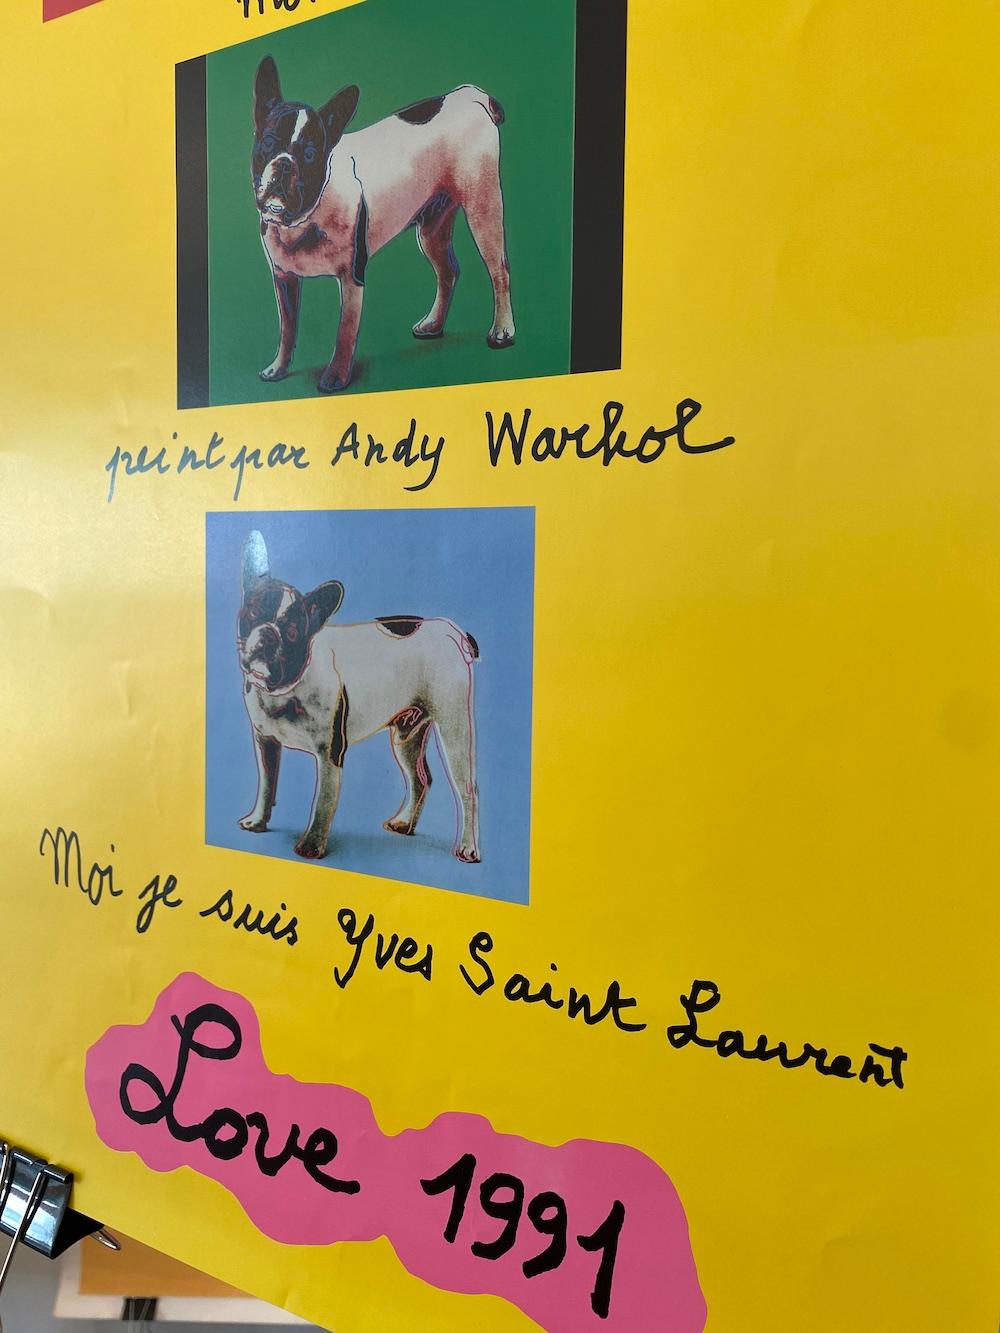 peint par Andy Warhol
Moi je suis Yves Saint Laurent
Love 1991